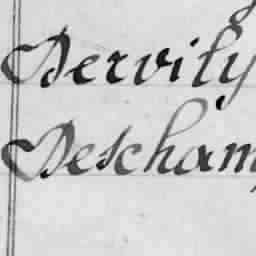 Dervily
Descham